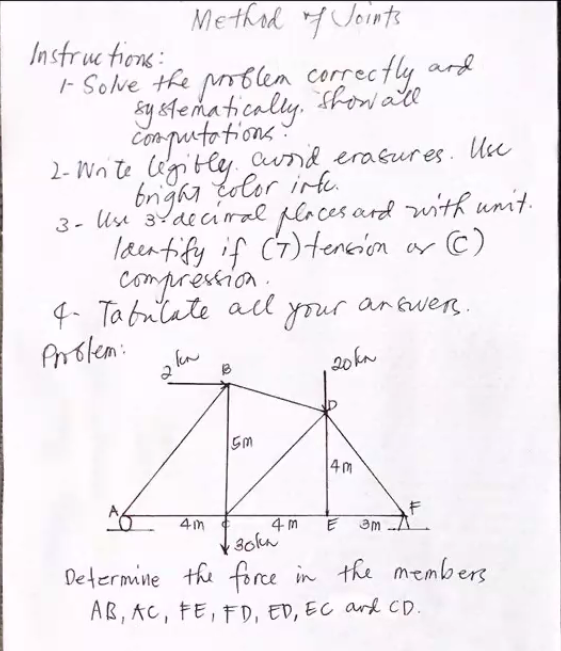 Method of Joints
Instructions:
1- Solve the problem correctly and
systematically. Show all
computations.
2- Write legibly. avoid erasures. Use
bright color ink.
3- Use 3 decimal places and with unit.
Identify if (T) tension or (C)
compression.
4- Tabulate all your answers.
Problem:
2 kn
B
20 kn
D
5m
4m
A
4m
C
4m
E
3m
F
30kn
Determine the force in the members
AB, AC, FE, FD, ED, EC and CD.